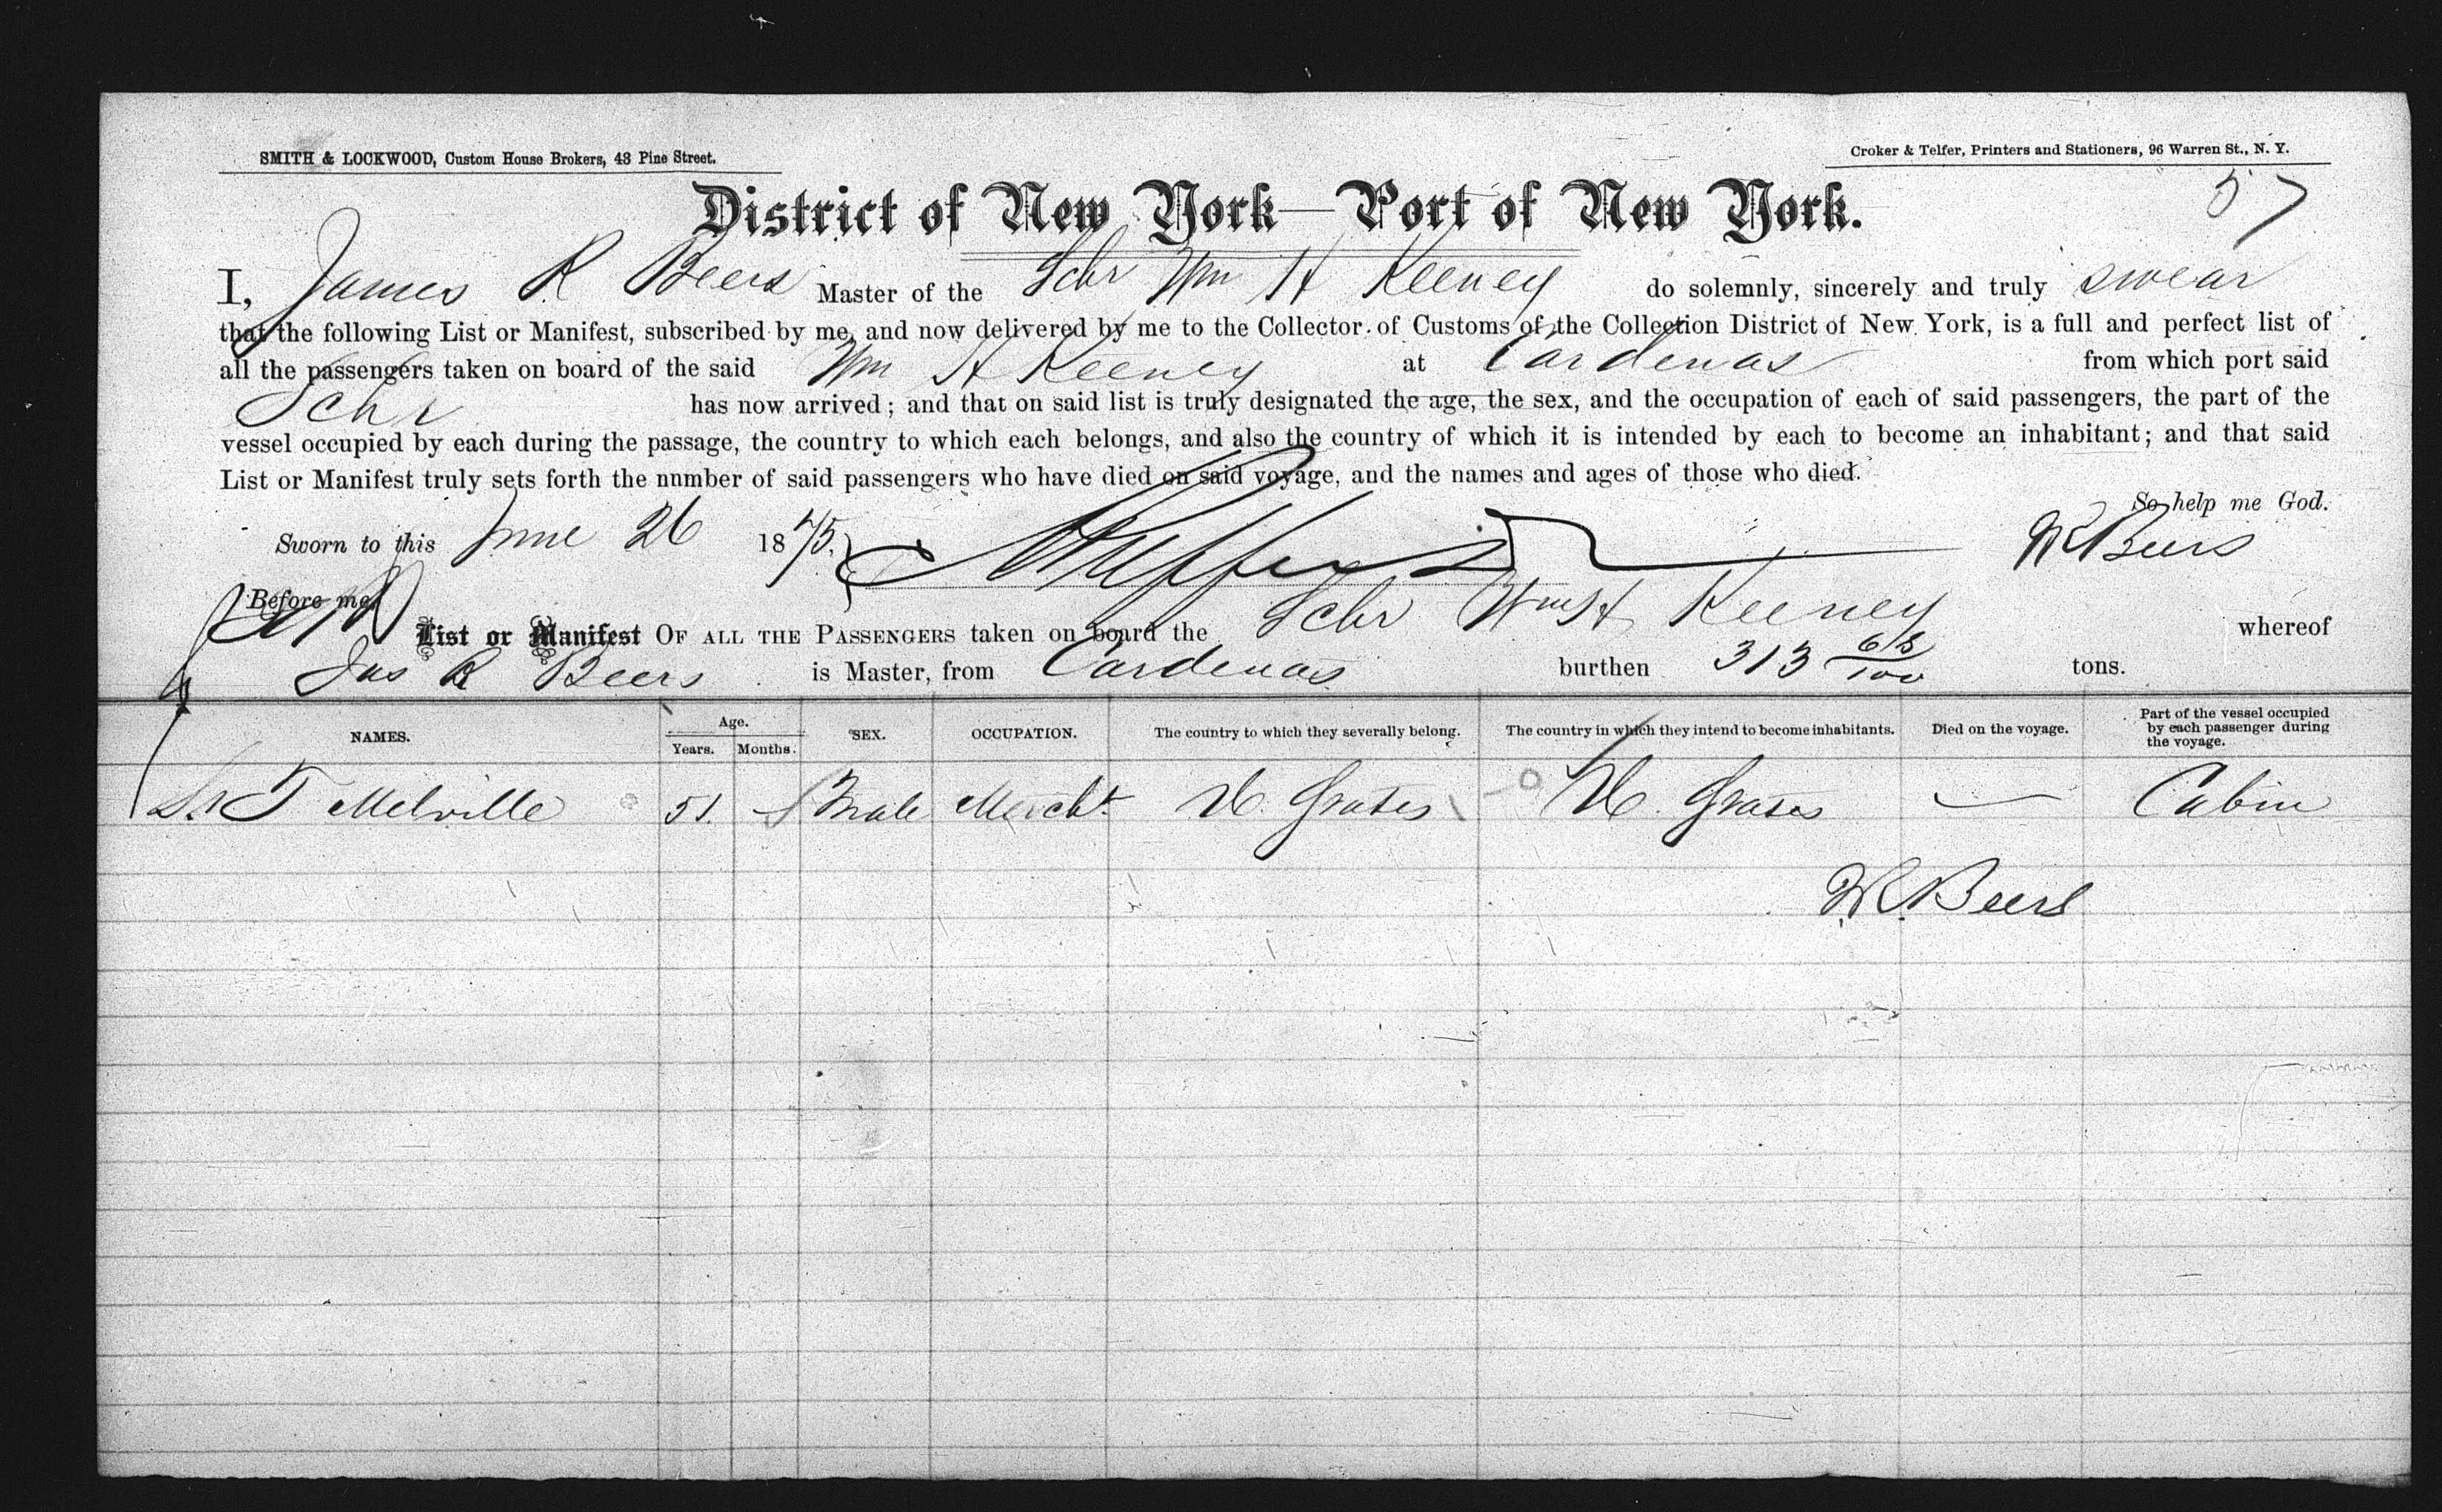 SMITH & LOCKWOOD, Custom House Brokers, 43 Pine Street.
Croker & Telfer, Printers and Stationers, 96 Warren St., N. Y.
57
District of New York—Port of New York.
I, James R Beers Master of the Schr Wm H Keeney do solemnly, sincerely and truly swear
that the following List or Manifest, subscribed by me, and now delivered by me to the Collector of Customs of the Collection District of New York, is a full and perfect list of
all the passengers taken on board of the said Wm H Keeney at Cardenas from which port said
Schr has now arrived; and that on said list is truly designated the age, the sex, and the occupation of each of said passengers, the part of the
vessel occupied by each during the passage, the country to which each belongs, and also the country of which it is intended by each to become an inhabitant; and that said
List or Manifest truly sets forth the number of said passengers who have died on said voyage, and the names and ages of those who died.
So help me God.
Sworn to this June 26 1875. J R Beers
Before me,
List or Manifest OF ALL THE PASSENGERS taken on board the Schr Wm H Keeney whereof
Jas R Beers is Master, from Cardenas burthen 313 68/100 tons.
NAMES. Age. Years. Months. SEX. OCCUPATION. The country to which they severally belong. The country in which they intend to become inhabitants. Died on the voyage. Part of the vessel occupied by each passenger during the voyage.
T Melville 51. Male Mercht U. States U. States — Cabin
J R Beers